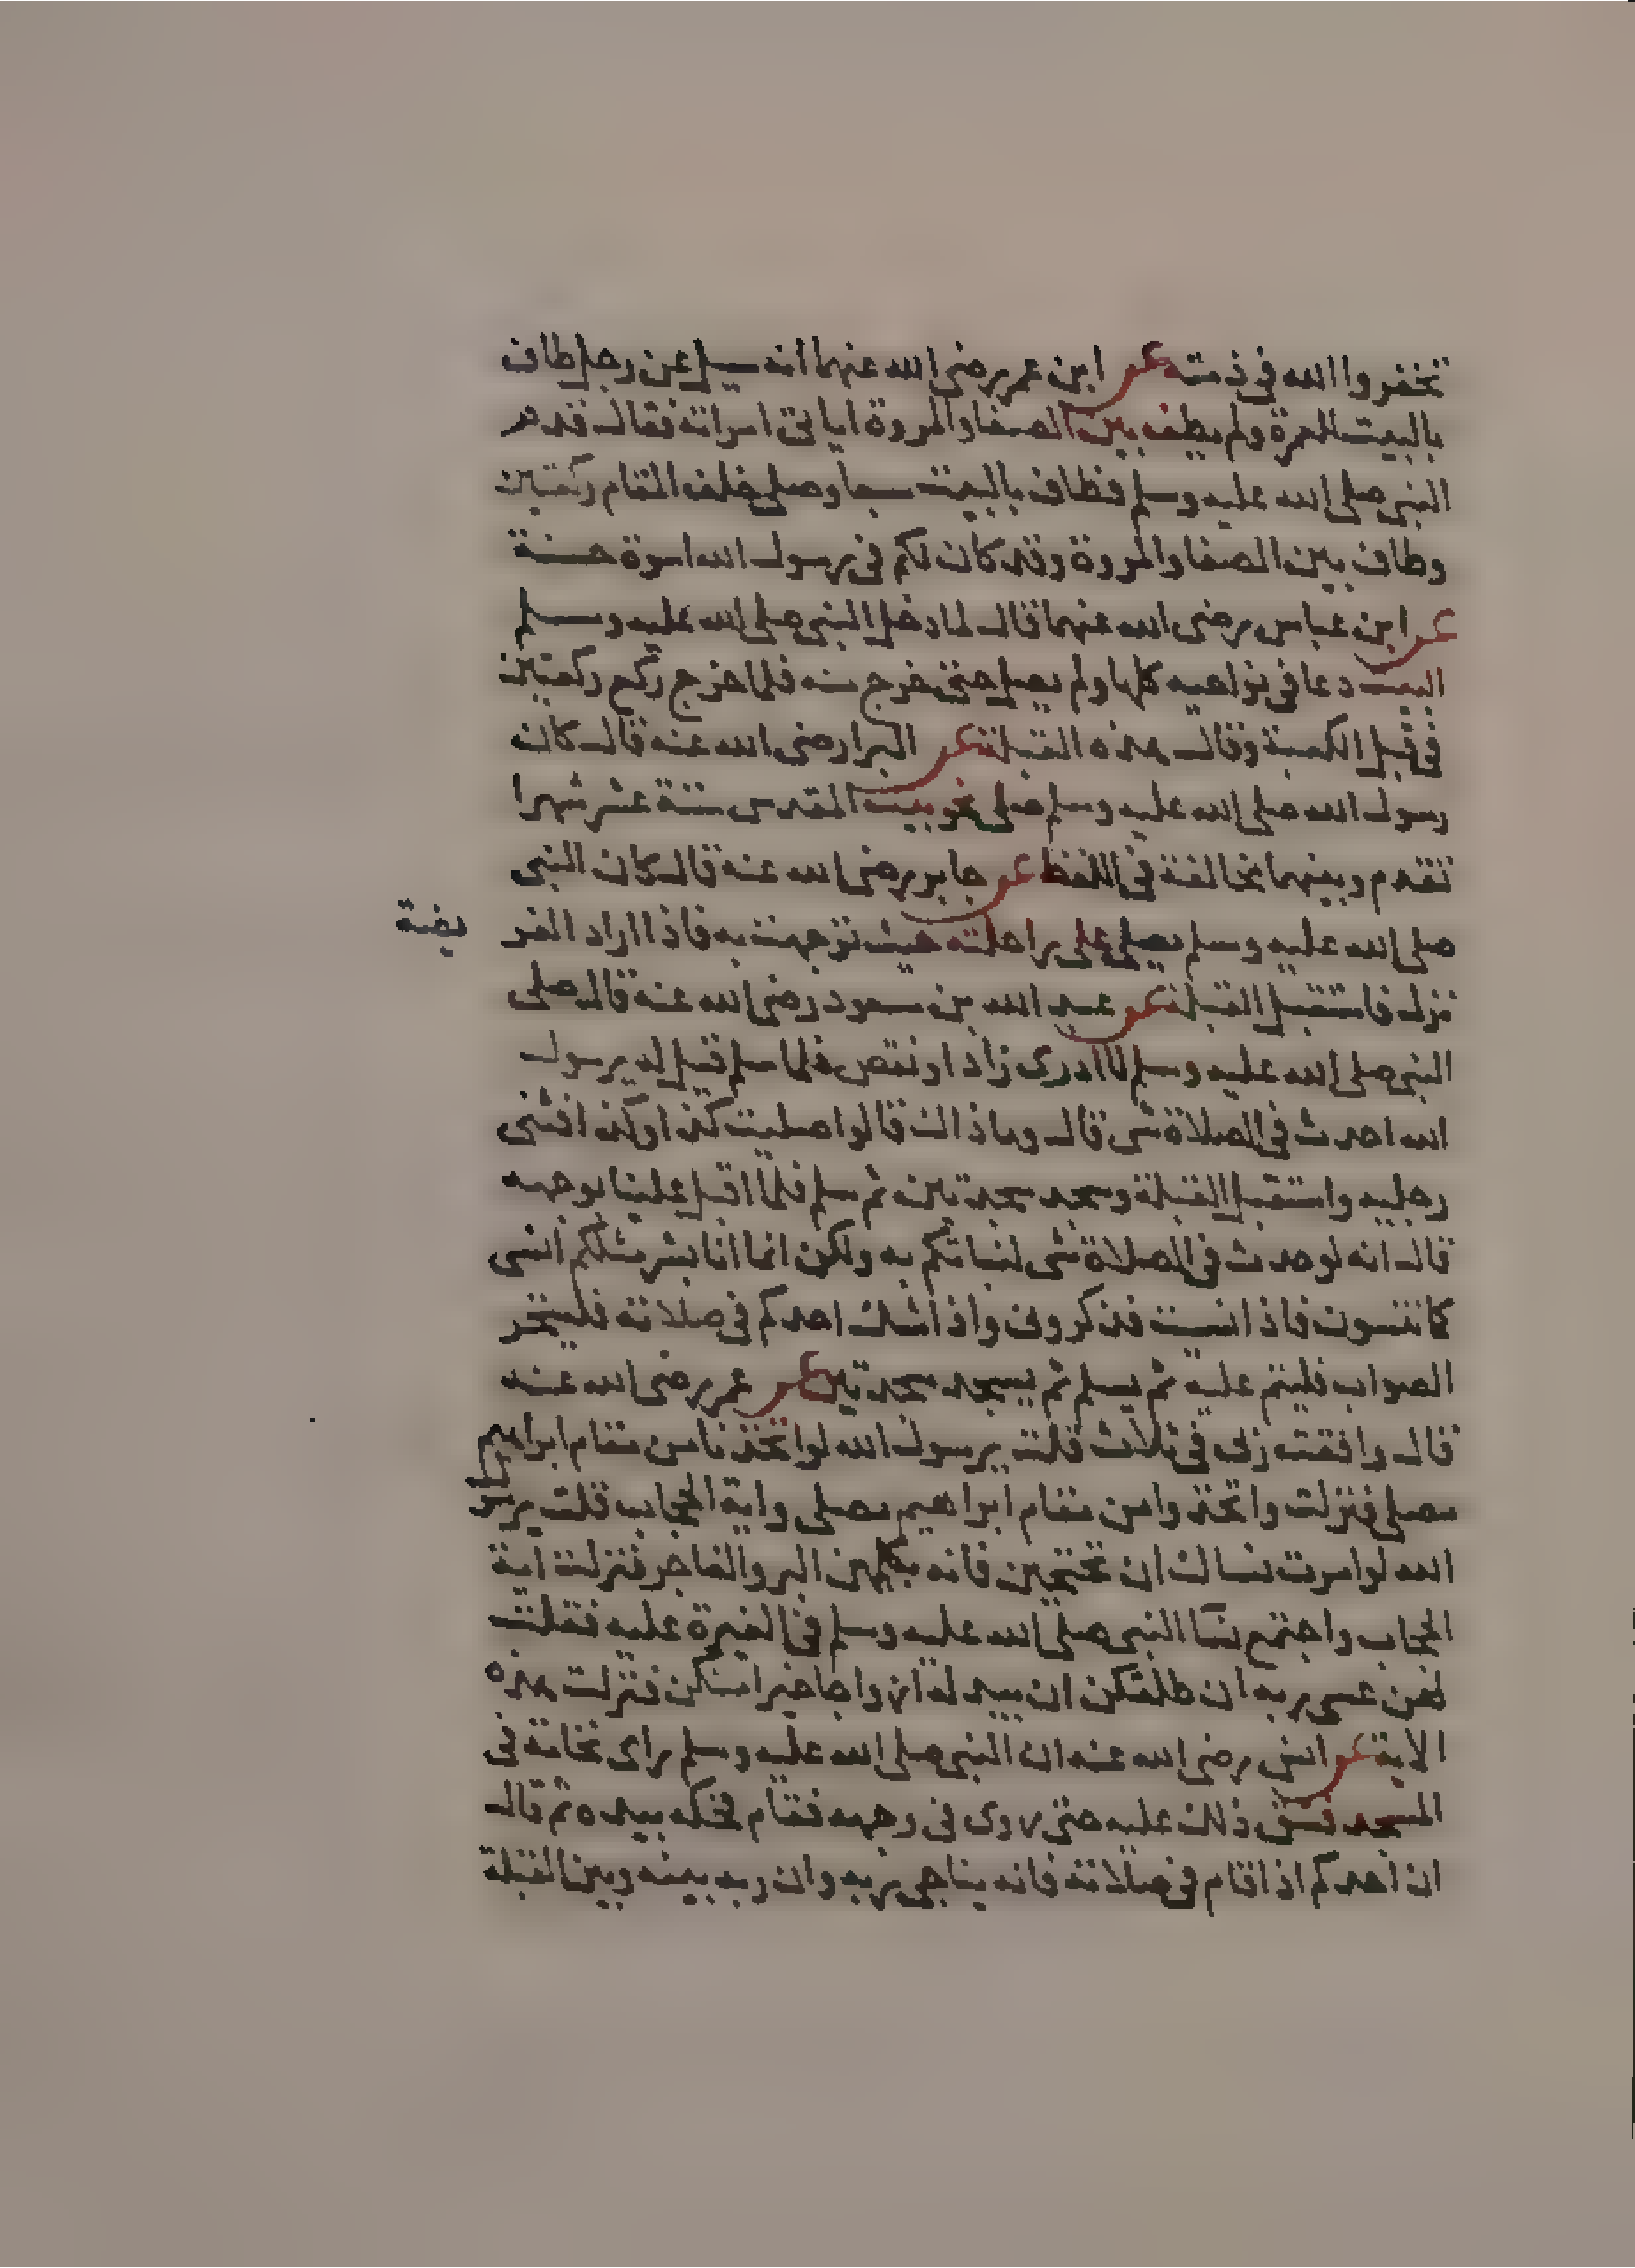 تخفروا الله في ذمته عن ابن عمر رضي الله عنهما انه سيل عن رجل طاف
بالبيت للعمرة ولم يطف بين الصفا والمروة اياتي امراته فقال قدم
النبي صلى الله عليه وسلم فطاف بالبيت سبعا وصلى خلف المقام ركعتين
وطاف بين الصفا والمروة وقد كان لكم في رسول الله اسوة حسنة
عن ابن عباس رضي الله عنهما قال لما دخل النبي صلى الله عليه وسلم
البيت دعا في نواحيه كلها ولم يصل حتى خرج منه فلما خرج ركع ركعتين
في قبل الكعبة وقال هذه القبلة عن البرا رضي الله عنه قال كان
رسول الله صلى الله عليه وسلم صلى نحو بيت المقدس ستة عشر شهرا
تقدم وبينهما مخالفة في اللفظ عن جابر رضي الله عنه قال كان النبي
صلى الله عليه وسلم يصلي على راحلته حيث توجهت به فاذا اراد الفر يضة
نزل فاستقبل القبلة عن عبد الله بن مسعود رضي الله عنه قال صلى
النبي صلى الله عليه وسلم لا ادري زاد او نقص فلما سلم قيل له يرسول
الله احدث في الصلاة شي قال وما ذاك قالوا صليت كذا وكذا فثنى
رجليه واستقبل القبلة وسجد سجدتين ثم سلم فلما اقبل علينا بوجهه
قال انه لو حدث في الصلاة شي لنباتكم به ولكن انما انا بشر مثلكم انسى
كما تنسون فاذا نسيت فذكروني واذا شك احدكم في صلاته فليتحر
الصواب فليتم عليه ثم يسلم ثم يسجد سجدتين عن عمر رضي الله عنه
قال وافقت ربي في ثلاث قلت يرسول الله لو اتخذنا من مقام ابراهيم
مصلى فنزلت واتخذوا من مقام ابراهيم مصلى واية الحجاب قلت يرسول
الله لو امرت نساك ان تحتجبن فانه يكلمهن البر والفاجر فنزلت اية
الحجاب واجتمع نسا النبي صلى الله عليه وسلم في الغيرة عليه فقلت
لهن عسى ربه ان طلقكن ان يبدله ازواجا خيرا منكن فنزلت هذه
الاية عن انس رضي الله عنه ان النبي صلى الله عليه وسلم راى نخامة في
المسجد فشق ذلك عليه حتى روي في وجهه فقام فحكه بيده ثم قال
ان احدكم اذا قام في صلاته فانه يناجي ربه وان ربه بينه وبين القبلة